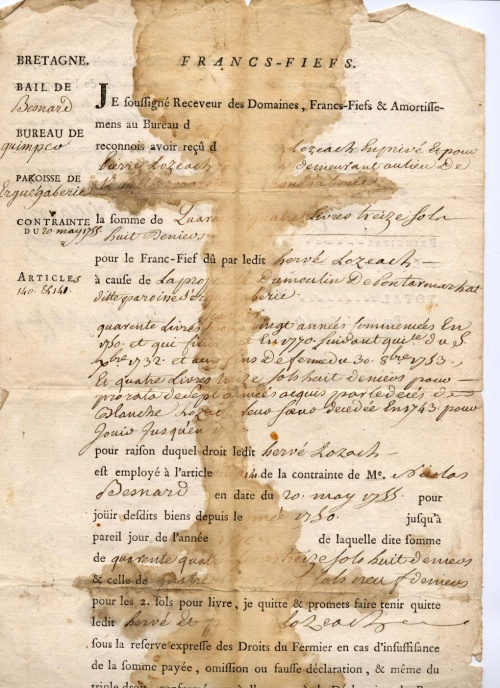 BRETAGNE.
FRANCS-FIEFS.
BAIL DE
Besnard
BUREAU DE
quimper
PAROISSE DE
Erguegaberic
CONTRAINTE
DU 20 may 1755
ARTICLES
140. Et 141
JE soussigné Receveur des Domaines, Francs-Fiefs & Amortisse-
mens au Bureau d
reconnois avoir reçu d Lozeach En privé Et pour
pierre Lozeach demeurant au lieu De
la somme de Quarante quatre Livres treize sols
huit deniers
pour le Franc-Fief dû par ledit hervé Lozeach —
à cause de La Du moulin De pontarmarhat
ditte paroisse d'
quarente Livres vingt années Commencées En
1750. et qui En 1770. suidant du 5
1732. et de ferme du 30. 8bre 1753.,
Et quatre Livres treize sols huit deniers pour —
prorata de sept années acquis par le deces de
Blanche Lozeach sœur decedée En 1743 pour
Jouir Jusqu'en
pour raison duquel droit ledit hervé Lozeach —
est employé à l'article de la contrainte de Me. Nicolas
Besnard en date du 20. may 1755. pour
joüir desdits biens depuis le 1750. jusqu'à
pareil jour de l'année de laquelle dite somme
de quarente quatre treize sols huit deniers
& celle de quatre sols neuf deniers
pour les 2. sols pour livre, je quitte & promets faire tenir quitte
ledit hervé Et Lozeach
sous la reserve expresse des Droits du Fermier en cas d'insuffisance
de la somme payée, omission ou fausse déclaration, & même du